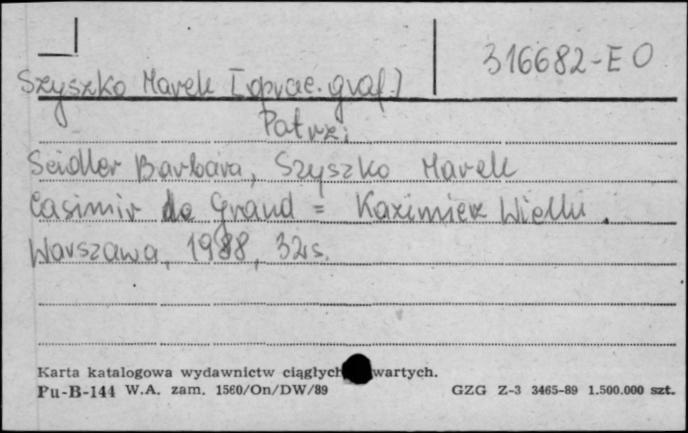 316682-E O
Szyszko Marek [oprac. graf.]
Patrz:
Seidler Barbara, Szyszko Marek
Casimir le Grand = Kazimierz Wielki.
Warszawa, 1988, 32 s.
Karta katalogowa wydawnictw ciągłych wartych.
Pu-B-144 W.A. zam. 1560/On/DW/89 GZG Z-3 3465-89 1.500.000 szt.